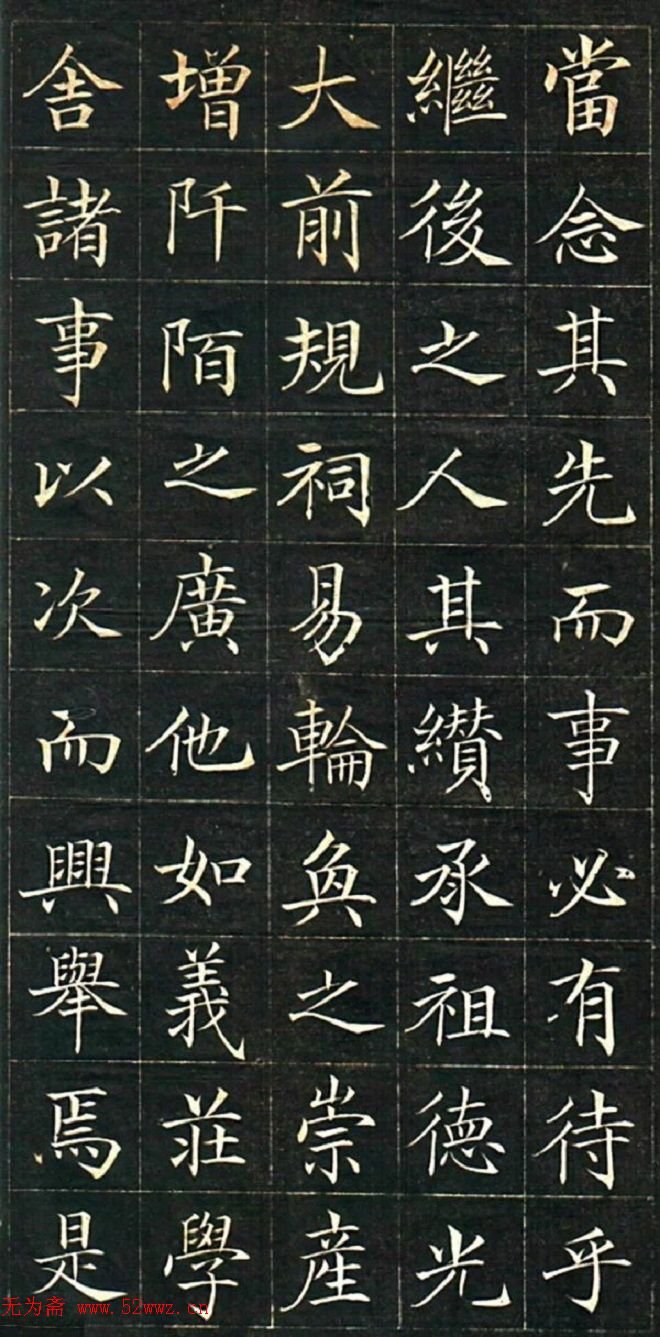 當念其先而事必有待乎
繼後之人其纘承祖德光
大前規祠易輪奐之崇産
增阡陌之廣他如義莊學
舍諸事以次而興舉焉是
无为斋 www.52wwz.cn